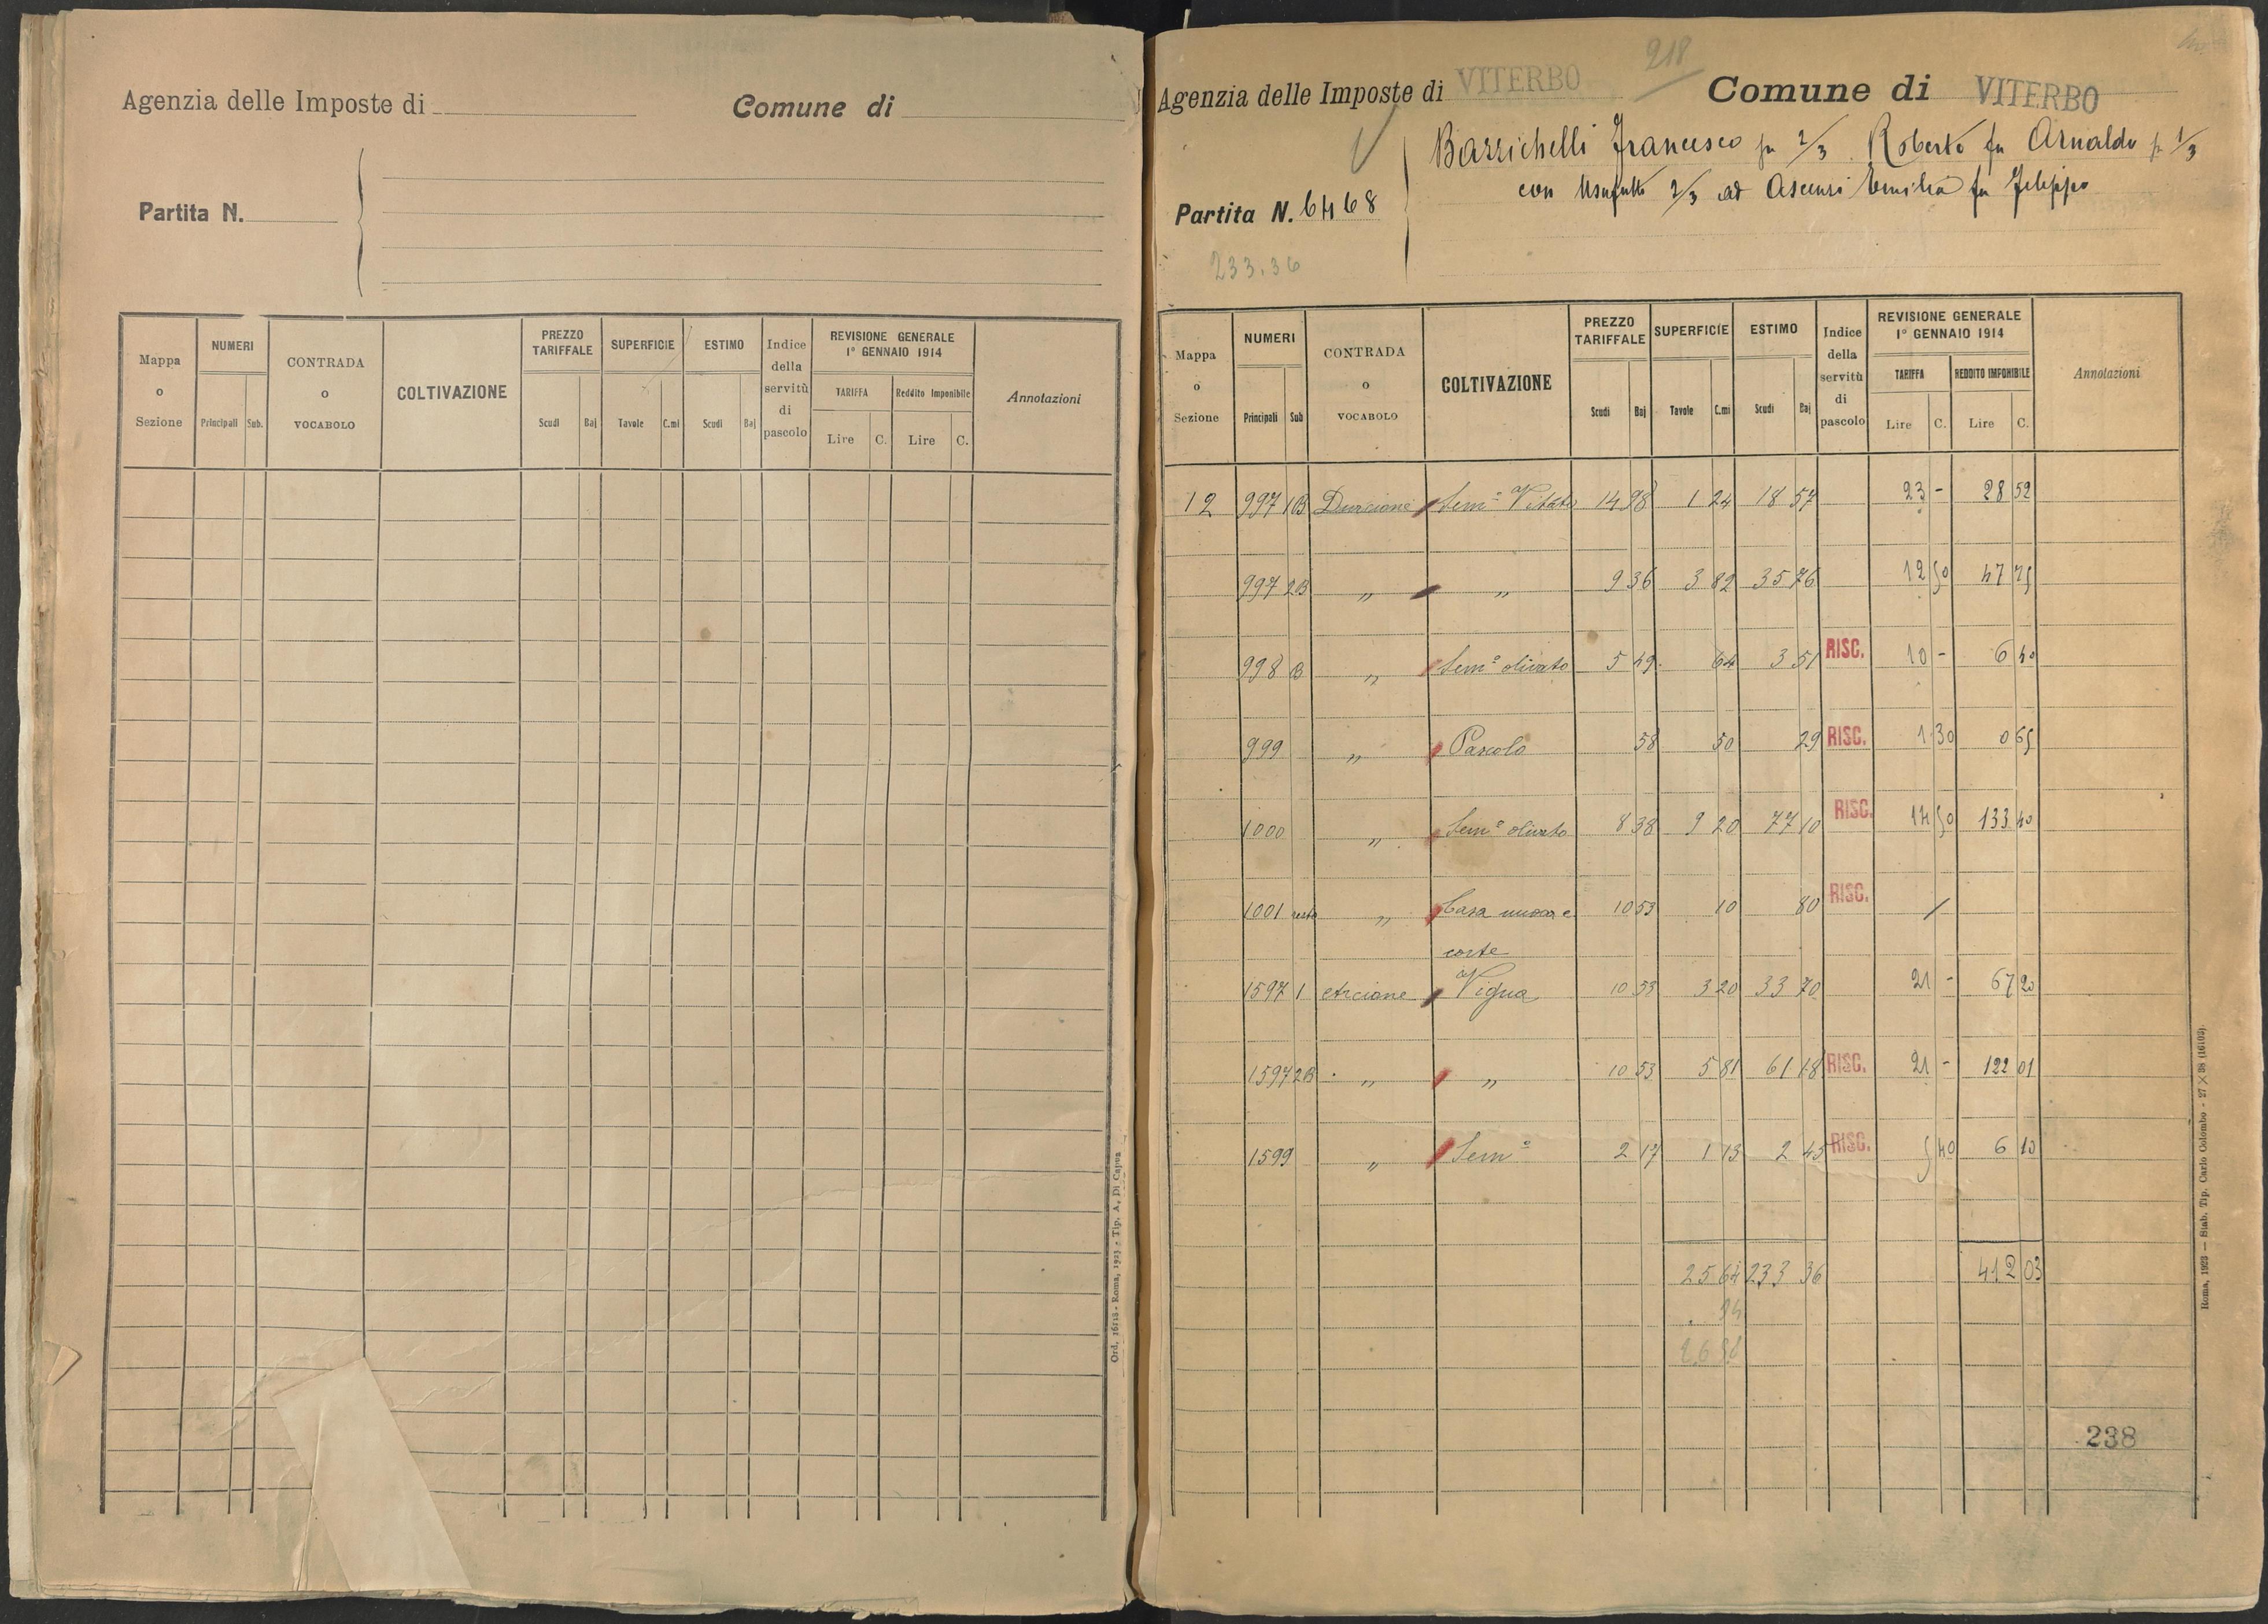 Agenzia delle Imposte di Comune di
Partita N.
Mappa o Sezione NUMERI Principali Sub. CONTRADA o VOCABOLO COLTIVAZIONE PREZZO TARIFFALE Scudi Baj SUPERFICIE Tavole C.mi ESTIMO Scudi Baj Indice della servitù di pascolo REVISIONE GENERALE 1° GENNAIO 1914 TARIFFA Lire C. Reddito Imponibile Lire C. Annotazioni
Ord. 16118 - Roma, 1923 - Tip. A. Di Capua
218
Agenzia delle Imposte di VITERBO Comune di VITERBO
Barrichelli Francesco pr 2/3 Roberto fu Arnaldo pr 1/3
con Usufrutto 2/3 ad Ascenzi Emilia fu Filippo
Partita N. 6468
233.36
Mappa o Sezione NUMERI Principali Sub CONTRADA o VOCABOLO COLTIVAZIONE PREZZO TARIFFALE Scudi Baj SUPERFICIE Tavole C.mi ESTIMO Scudi Baj Indice della servitù di pascolo REVISIONE GENERALE 1° GENNAIO 1914 TARIFFA Lire C. REDDITO IMPONIBILE Lire C. Annotazioni
12 997 1B Sem.o Vitato 14 98 1 24 18 57 23 - 28 52
997 2B " " 9 36 3 82 35 76 12 50 47 75
998 B " Sem.o olivato 5 49 64 3 51 RISC. 10 - 6 40
999 " Pascolo 58 50 29 RISC. 1 30 0 65
1000 " Sem.o olivato 8 38 9 20 77 10 RISC. 14 50 133 40
1001 resto " Casa nuova e 10 53 10 80 RISC. /
corte
1597 1 Arcione Vigna 10 53 3 20 33 70 21 - 67 20
1597 2B " " 10 53 5 81 61 18 RISC. 21 - 122 01
1599 " Sem.o 2 17 1 13 2 45 RISC. 5 40 6 10
25 64 233 36 412 03
94
26 58
238
Roma, 1923 — Stab. Tip. Carlo Colombo - 27 × 38 (16103).